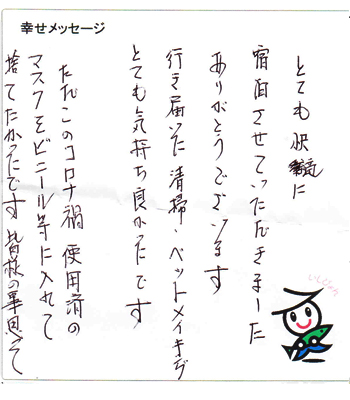 幸せメッセージ
とても快適に
宿泊させていただきました
ありがとうございます
行き届いた清掃・ベットメイキング
とても気持ち良かったです
ただこのコロナ禍 使用済の
マスクをビニール等に入れて
捨てたかったです 皆様の事思って